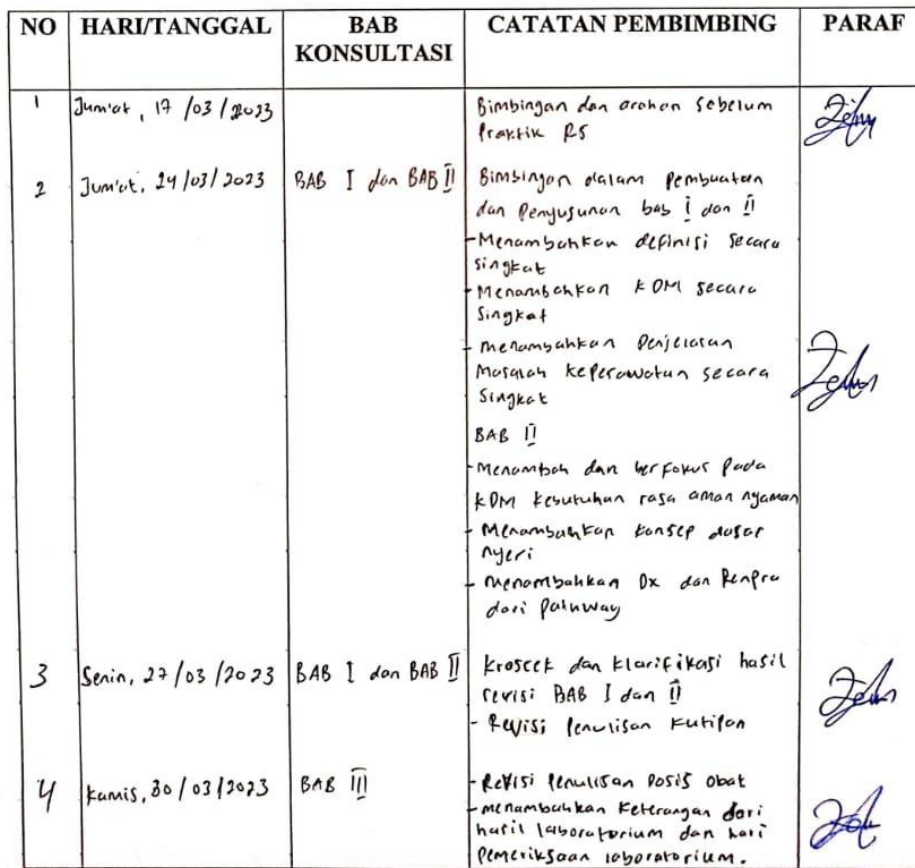 NO HARI/TANGGAL BAB KONSULTASI CATATAN PEMBIMBING PARAF
1 Jum'at, 17/03/2023 Bimbingan dan arahan sebelum
Praktik RS
2 Jum'at, 24/03/2023 BAB I dan BAB II Bimbingan dalam Pembuatan
dan Penyusunan bab I dan II
- Menambahkan definisi secara
singkat
- Menambahkan KDM secara
Singkat
- menambahkan Penjelasan
Masalah Keperawatan secara
Singkat
BAB II
- Menambah dan berfokus pada
KDM Kebutuhan rasa aman nyaman
- Menambahkan Konsep dasar
nyeri
- Menambahkan Dx dan Renpra
dari Pathway
3 Senin, 27/03/2023 BAB I dan BAB II Kroscek dan Klarifikasi hasil
revisi BAB I dan II
- Revisi Penulisan Kutipan
4 Kamis, 30/03/2023 BAB III - Revisi Penulisan Dosis Obat
- menambahkan Keterangan dari
hasil laboratorium dan hari
Pemeriksaan laboratorium.